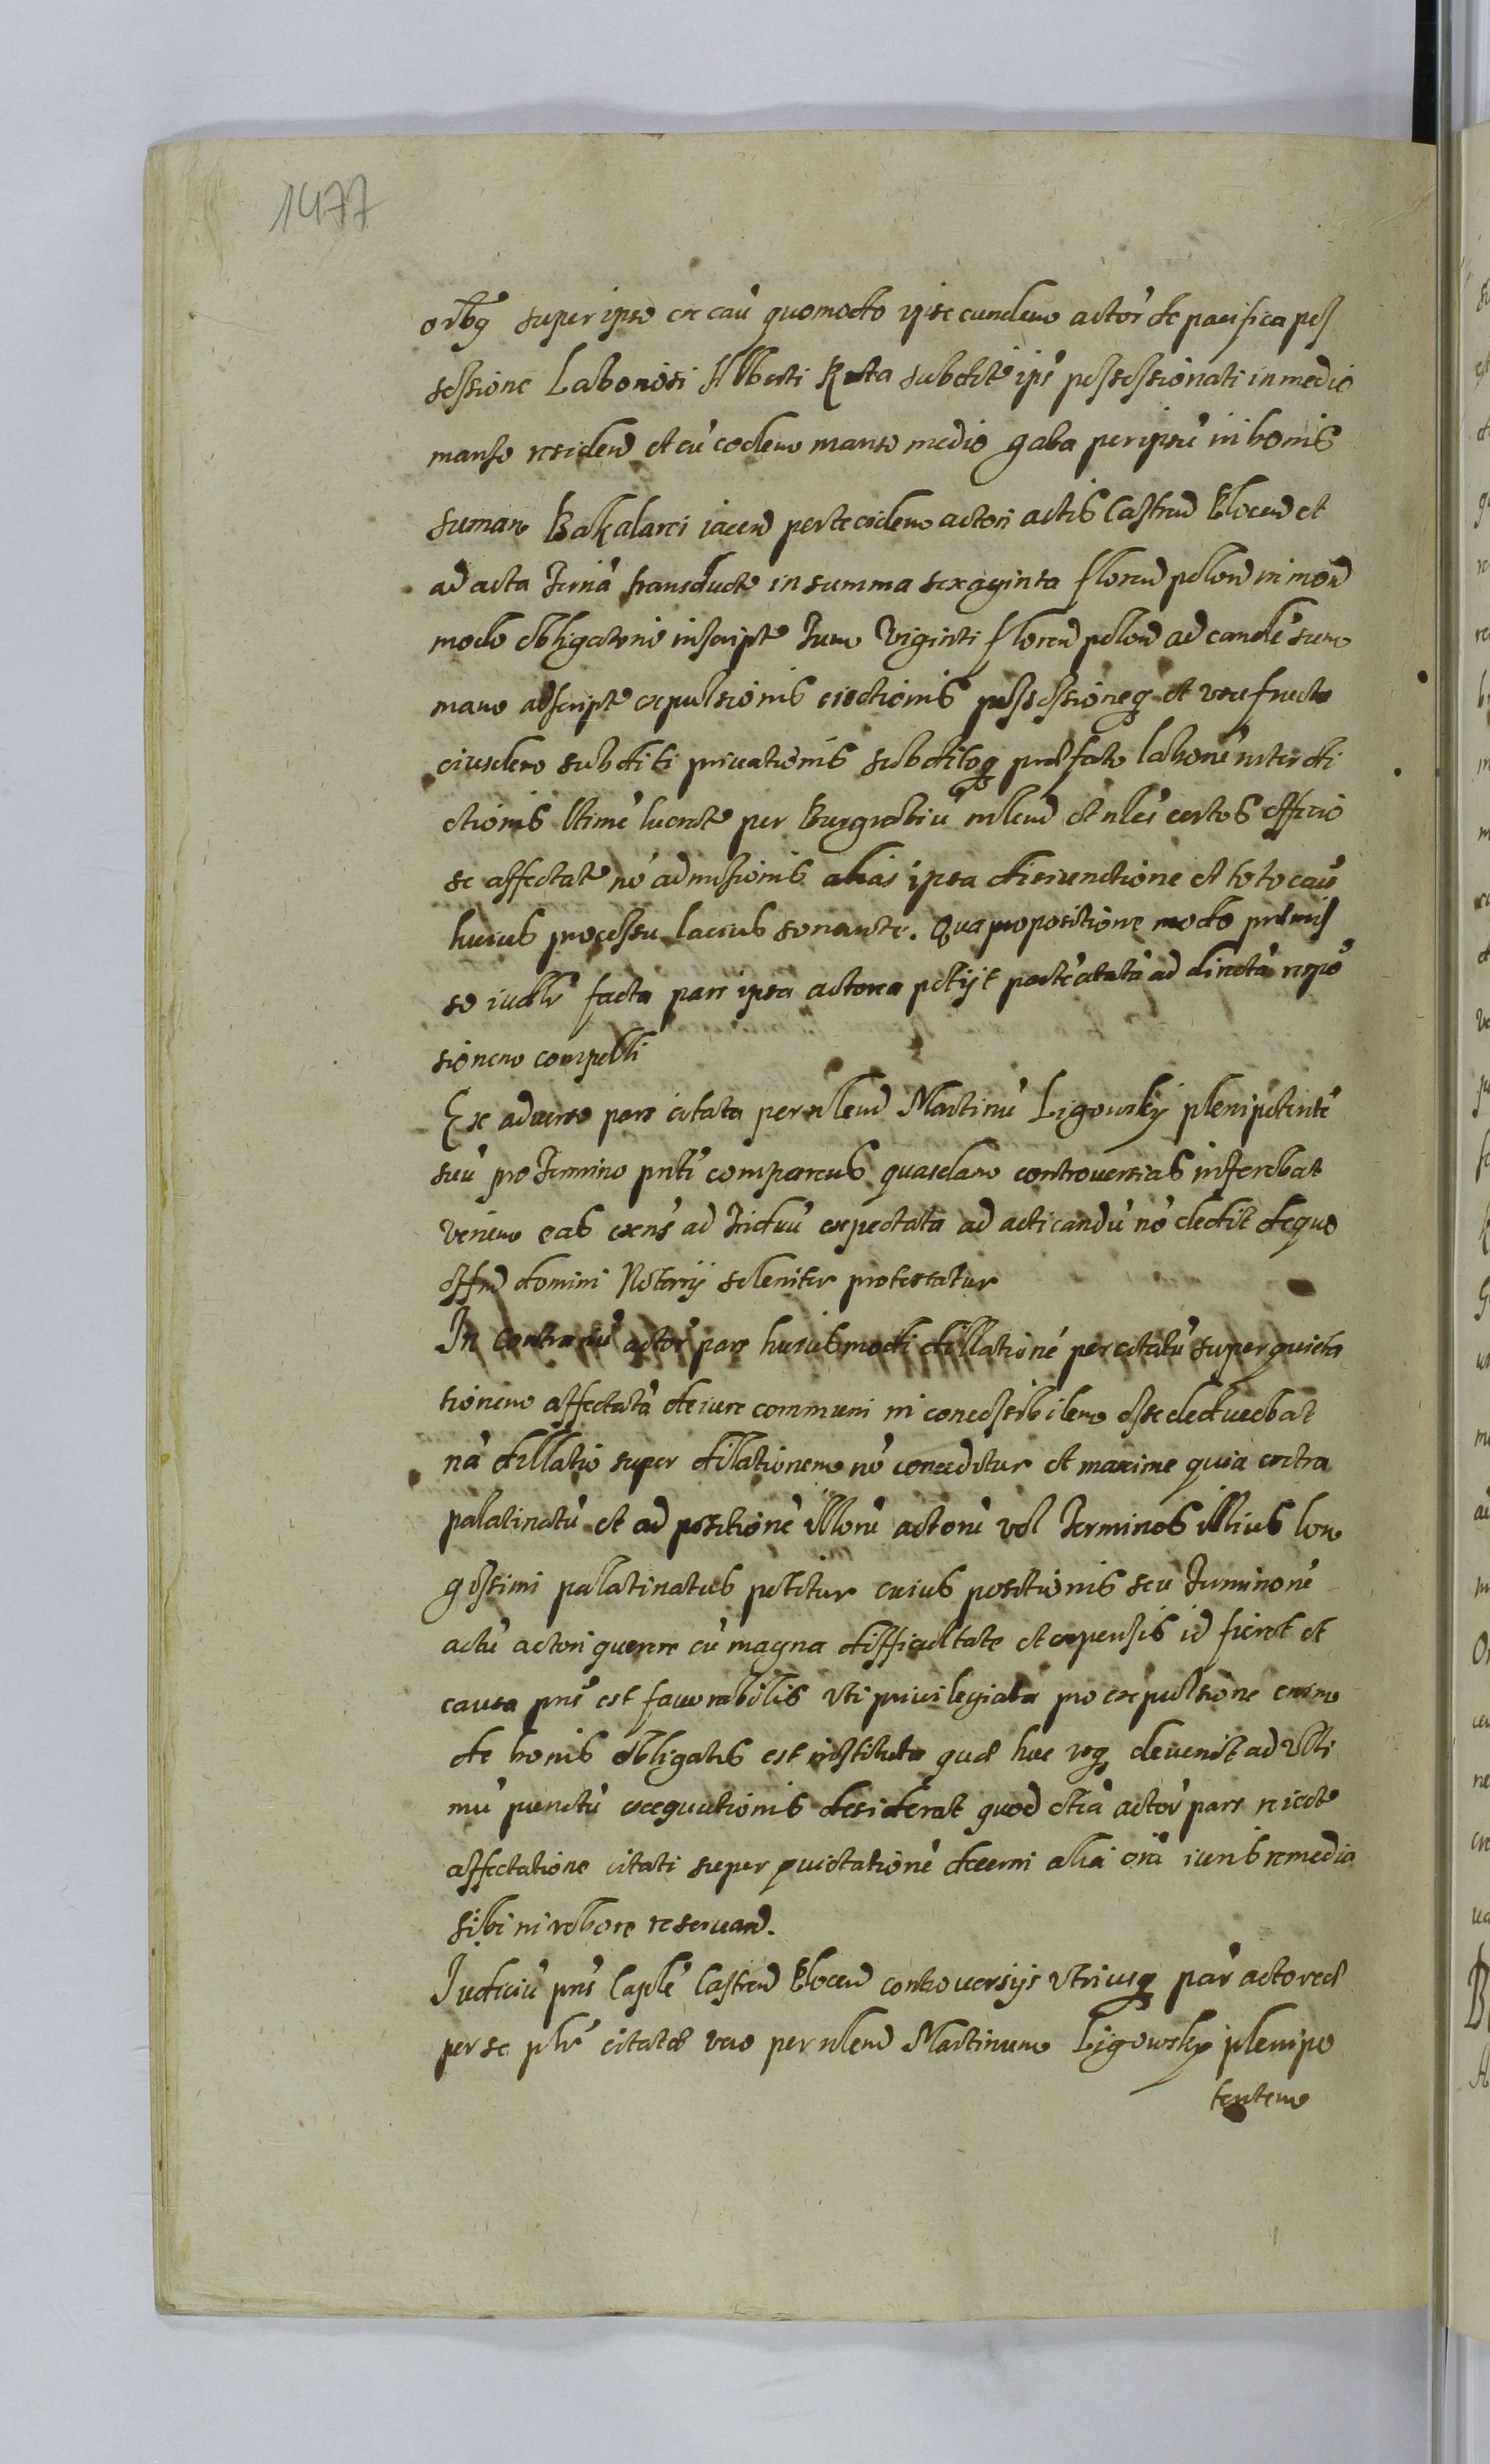 1477
super ipso ex cau͂ quomodo ipse eundem actor͂ de pacifica pos
sessione Laboriosi Alberti Kuta subdit ip͂s possessionati in medio
manso residen et cu͂ eodem manso medio per ipsu͂ in bonis
suman͂ Bakalarci iacen per te eidem actori actis Castren Plocen et
ad acta Terrar͂ transducte in summa sexaginta floren polon in mon
modo obligatorio inscript Tum Viginti floren polon ad eande͂ sum
mam adscript expulsionis eiectionis possessioneq et usufructu
eiusdem subditi privationis subditoq praefato labore͂ interdi
ctionis per Burgrabiu͂ nlem et nles certos officio
se affectate no͂ admissionis alias ipsa disiunctione et toto cau͂
huius processu lacius sonante. Qua propositione modo praemis
so iudllr facta pars ipsa actorea petijt parte͂ citata͂ ad directa͂ respo͂
sionem compelli
Ex adverso pars citata per nlem Martinu͂ Ligowsky plenipotente͂
suu͂ pro Termino pnti comparens quasdam controversias inferebat
verum eas exn͂s ad Triduu͂ expectata ad acticandu͂ no͂ dedit de quo
offm domini Notarij soleniter protestatur
In contrariu͂ actor͂ pars huiusmodi dillatione͂ per citatu͂ super quieta
tionem affectata͂ de iure communi in concessibilem esse deducebat
na͂ dillatio super dilationem no͂ conceditur et maxime quia extra
palatinatu͂ et ad positione͂ illoru͂ actoru͂ vel Terminos illius lon
gissimi palatinatus petitur cuius positionis seu Terminoru͂
actu͂ actori querere cu͂ magna difficultate et expensis id fieret et
causa pns est favorabilis uti privilegiata pro expulsione enim
de bonis obligatis est instituta quae huc usq devenit ad ulti
mu͂ punctu͂ exequutionis desiderat quod etia͂ actor͂ pars reiecte
affectatione citati super quietatione͂ decerni alia o͂ia iuris remedia
sibi in robore reservan.
Iudiciu͂ pns Caple͂ Castren Plocen controversijs utriusq par͂ actoreae
per se citatae vero per nlem Martinum Ligowsky plenipo
tentem